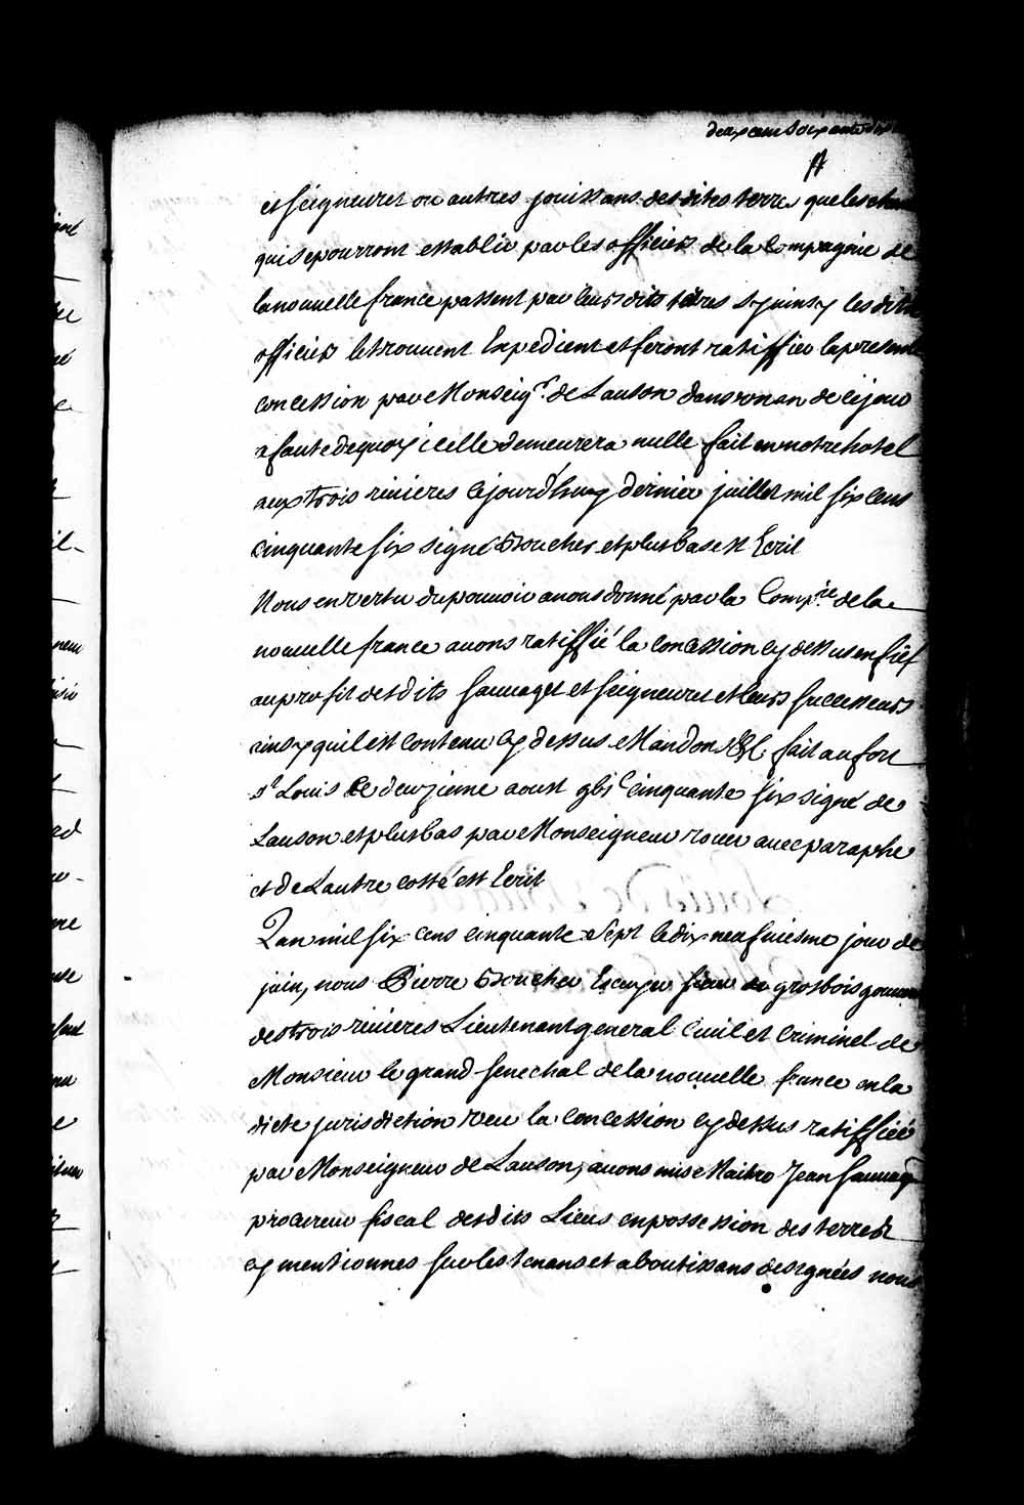 deux cent soixante dix
et seigneuret ou autres jouissans desdites terres que les chem
qui se pourront establir par les officiers de la Compagnie de
la nouuelle france passent par leurs dits terres sy ainsy lesdits
officiers le trouuent Expedient et feront ratiffier la presente
concession par Monseigr. de Lauson dans un an de ce jour
a faute dequoy icelle demeurera nulle fait en notre hotel
aux trois riuieres ce jourd'huy dernier juillet mil six cens
cinquante six signé Boucher et plus bas est Ecrit
Nous en vertu du pouuoir a nous donné par la Compie. de la
nouuelle france auons ratiffié la concession cy dessus en fief
au profit desdits Sauuaget et Seigneuret et leurs successeurs
ainsy quil est contenu cy dessus Mandons &c. fait au fort
st Louis ce deuxieme aoust gbic cinquante six signé de
Lauson et plus bas par Monseigneur rouer auec paraphe
et de Lautre costé est Ecrit
Lan mil six cens cinquante Sept le dix neufuiesme jour de
juin, nous Pierre Boucher Escuyer sieur de grosbois gouuern
des trois riuieres Lieutenant general Ciuil et Criminel de
Monsieur le grand Senechal de la nouuelle france en la
dicte jurisdiction veu la concession cy dessus ratiffiée
par Monseigneur de Lauson, auons mis Maitre Jean Sauuag
procureur fiscal desdits Lieux en possession des terres
cy mentionnes sur les tenans et aboutissans designées nous